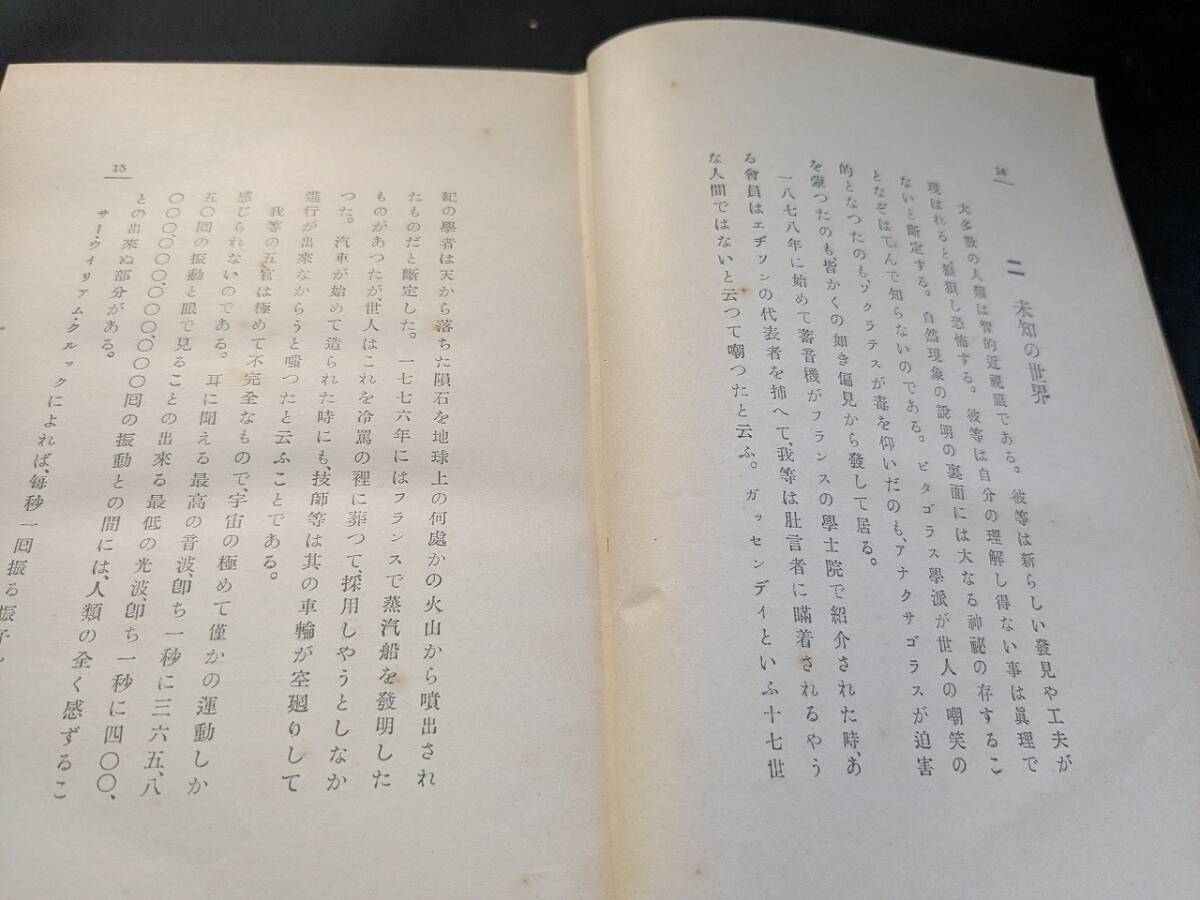 14
二 未知の世界
大多數の人類は智的近視眼である。彼等は新らしい發見や工夫が
現はれると、狼狽し恐怖する。彼等は自分の理解し得ない事は眞理で
ないと斷定する。自然現象の説明の裏面には大なる神祕の存するこ
となぞはてんで知らないのである。ピタゴラス學派が世人の嘲笑の
的となつたのも、ソクラテスが毒を仰いだのも、アナクサゴラスが迫害
を蒙つたのも皆かくの如き偏見から發して居る。
一八七八年に始めて蓄音機がフランスの學士院で紹介された時、あ
る會員はエヂソンの代表者を捕へて、我等は肚言者に瞞着されるやう
な人間ではないと云つて嘲つたと云ふ。ガッセンディといふ十七世
15
紀の學者は天から落ちた隕石を地球上の何處かの火山から噴出され
たものだと斷定した。一七七六年にはフランスで蒸汽船を發明した
ものがあつたが、世人はこれを冷罵の裡に葬つて、採用しやうとしなか
つた。汽車が始めて造られた時にも、技師等は其の車輪が空廻りして
進行が出來なからうと嗤つたと云ふことである。
我等の五官は極めて不完全なもので、宇宙の極めて僅かの運動しか
感じられないのである。耳に聞える最高の音波、卽ち一秒に三六五、八
五〇囘の振動と眼で見ることの出來る最低の光波、卽ち一秒に四〇〇、
〇〇〇、〇〇〇、〇〇〇、〇〇〇囘の振動との間には、人類の全く感ずるこ
との出來ぬ部分がある。
サー・ウィリアム・クルックによれば、毎秒一囘振る振子